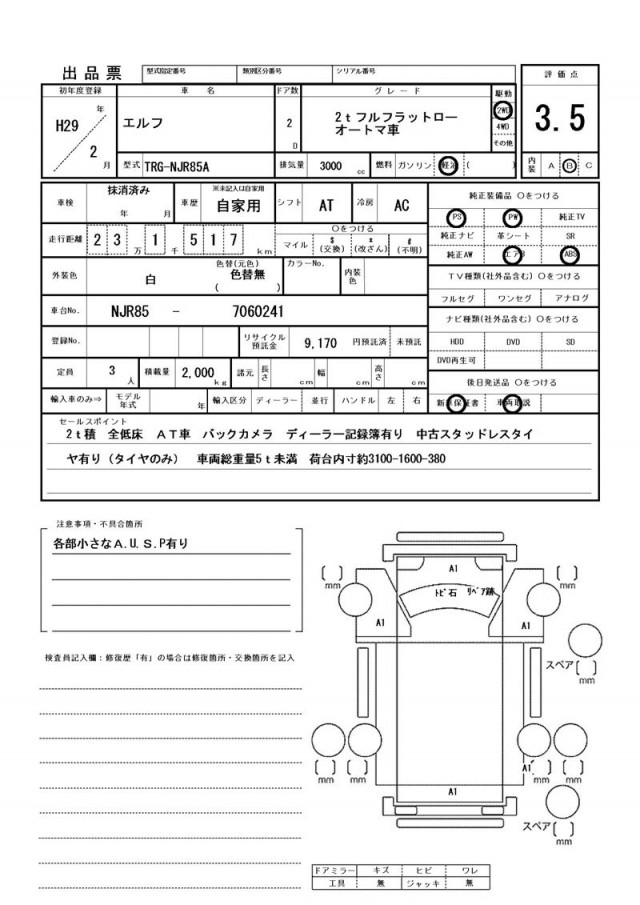 出品票 型式指定番号 類別区分番号 シリアル番号 評価点
初年度登録 車名 ドア数 グレード 駆動
H29 年 エルフ 2 D 2tフルフラットロー 2WD 3.5
2 月 オートマ車 4WD
その他
型式 TRG-NJR85A 排気量 3000 cc 燃料 ガソリン 軽油 ( ) 内装 A B C
車検 抹消済み 年 月 車歴 ※未記入は自家用 自家用 シフト AT 冷房 AC 純正装備品 〇をつける
PS PW 純正TV
走行距離 23万 1千 517 km 〇をつける マイル $(交換) *(改ざん) #(不明) 純正ナビ 革シート SR
純正AW エアB ABS
外装色 白 色替(元色) 色替無 ( ) カラーNo. 内装色 TV種類(社外品含む) 〇をつける
フルセグ ワンセグ アナログ
車台No. NJR85 - 7060241 ナビ種類(社外品含む) 〇をつける
登録No. リサイクル預託金 9,170 円預託済 未預託 HDD DVD SD
DVD再生可
定員 3 人 積載量 2,000 kg 諸元 長さ cm 幅 cm 高さ cm 後日発送品 〇をつける
輸入車のみ⇒ モデル年式 年 輸入区分 ディーラー 並行 ハンドル 左 右 新車保証書 車両取説
セールスポイント
2t積 全低床 AT車 バックカメラ ディーラー記録簿有り 中古スタッドレスタイ
ヤ有り(タイヤのみ) 車両総重量5t未満 荷台内寸約3100-1600-380
注意事項・不具合箇所
各部小さなA.U.S.P有り
検査員記入欄：修復歴「有」の場合は修復箇所・交換箇所を記入
A1
トビ石 リペア跡
[ ] mm [ ] mm
A1 A1
スペア [ ] mm
[ ] mm [ ] mm A1 [ ] mm [ ] mm
A1
スペア [ ] mm
ドアミラー キズ ヒビ ワレ
工具 無 ジャッキ 無